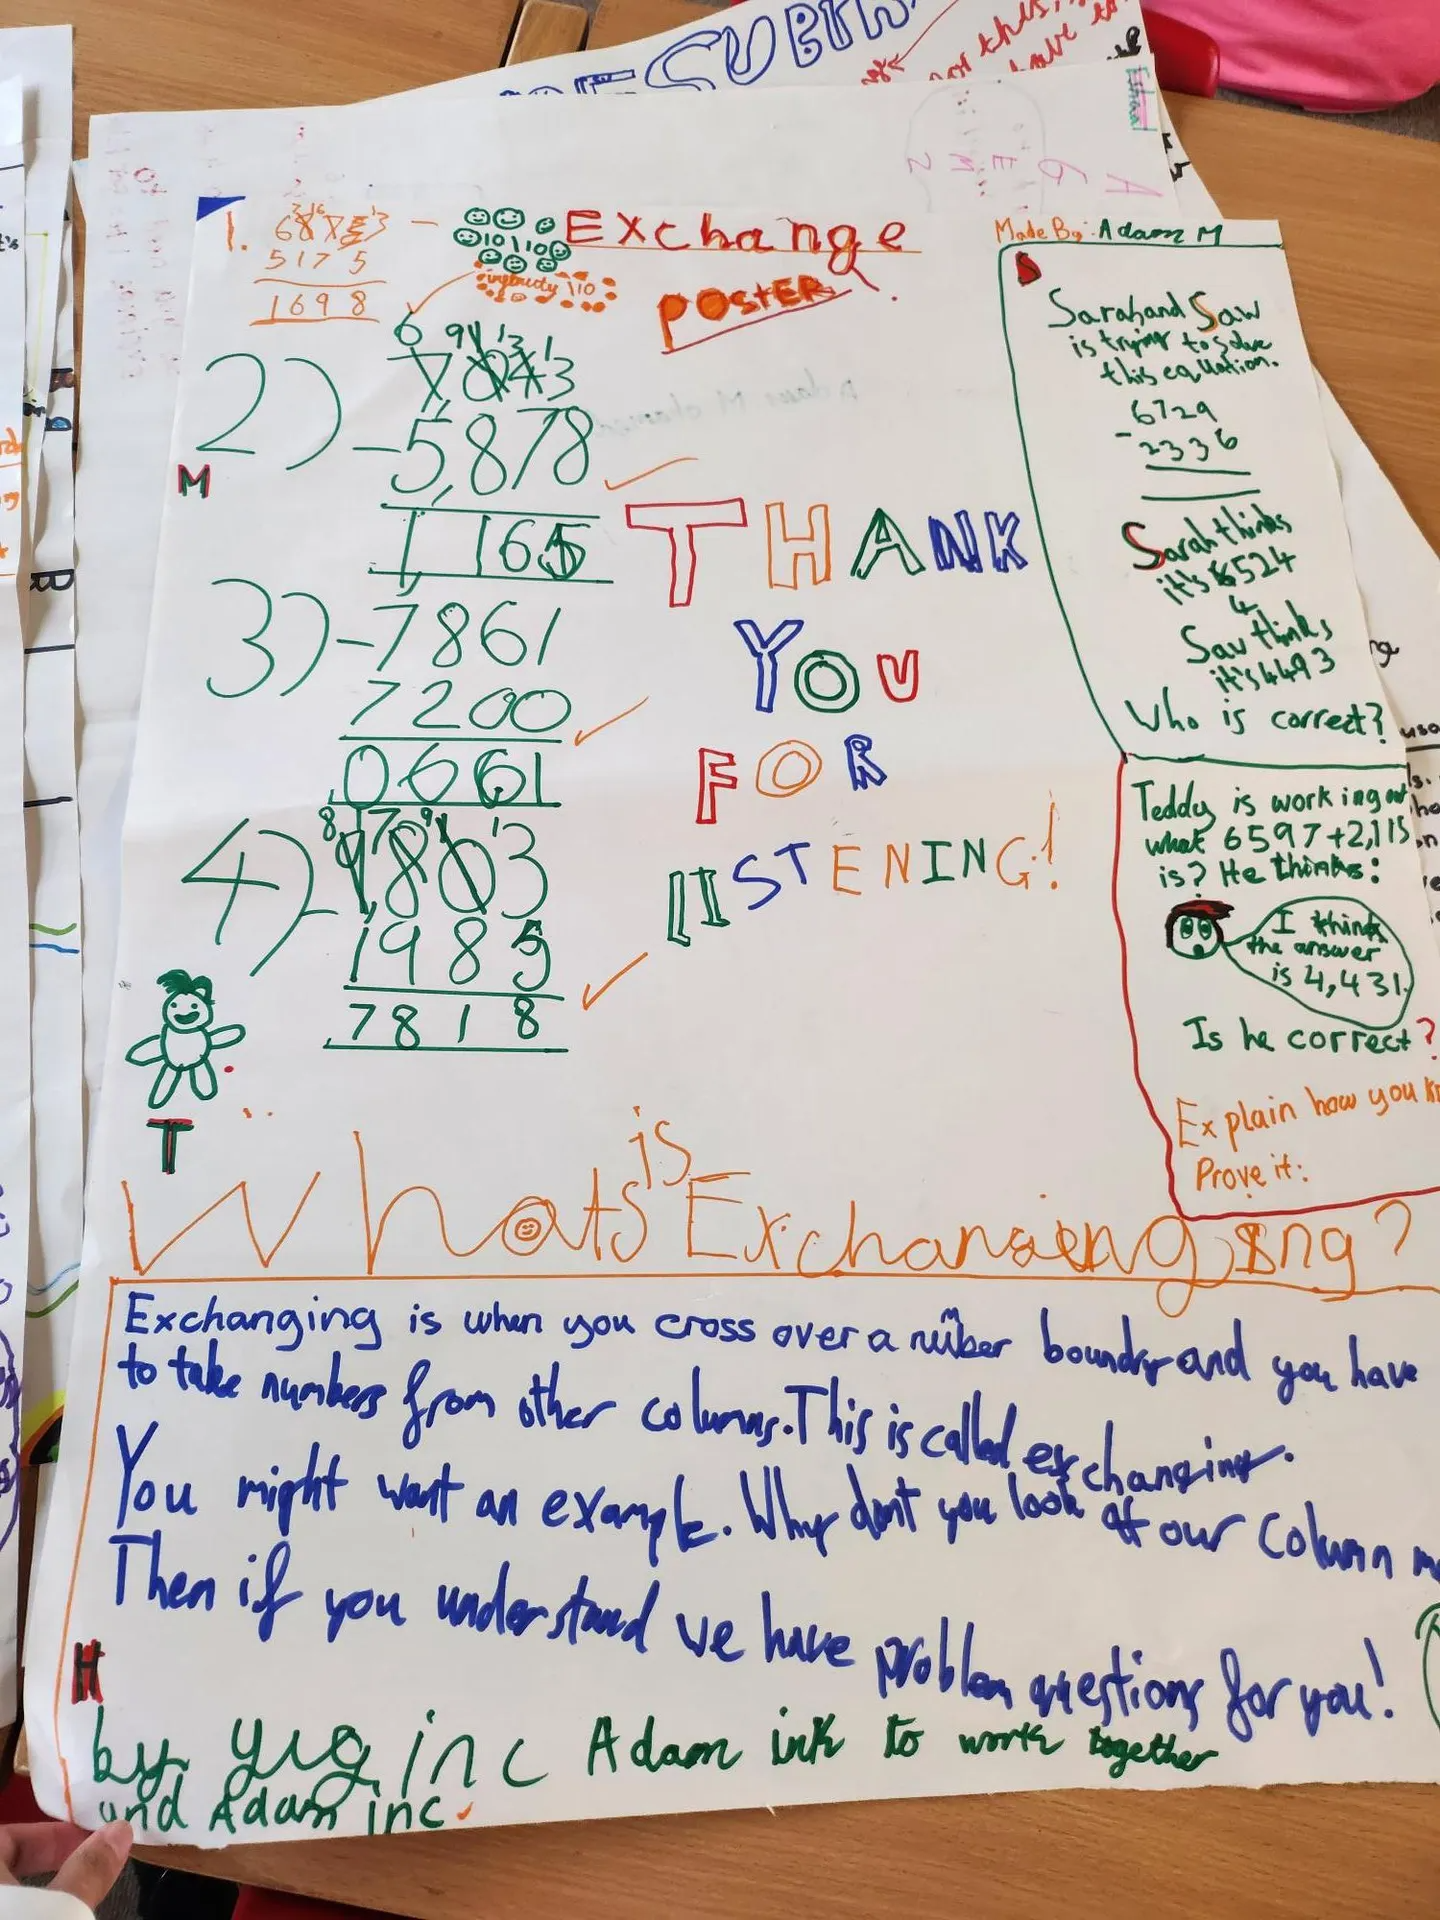 SUBTR
Ethan
1.
6873
5175
1698
10 110
Exchange
POSTER
infinity 110
Made By: Adam M
S
Sarah and Saw
is trying to solve
this equation.
6729
- 2336
Sarah thinks
it's 6524
Sav thinks
it's 4493
Who is correct?
2)
6 9 13 1
7,043
-5,878
1,165
M
3)
-7861
7200
0661
4)
8 17 9 1
9,803
-1985
7818
THANK
YOU
FOR
LISTENING!
Teddy is working out
what 6597+2,115
is? He thinks:
I think
the answer
is 4,431.
Is he correct?
Explain how you
Prove it:
T
Whats is Exchanging?
Exchanging is when you cross over a number boundry and you have
to take numbers from other columns. This is called exchanging.
You might want an example. Why don't you look at our column
Then if you understand we have problem questions for you!
H
by yug inc Adam ink to work together
and Adam inc